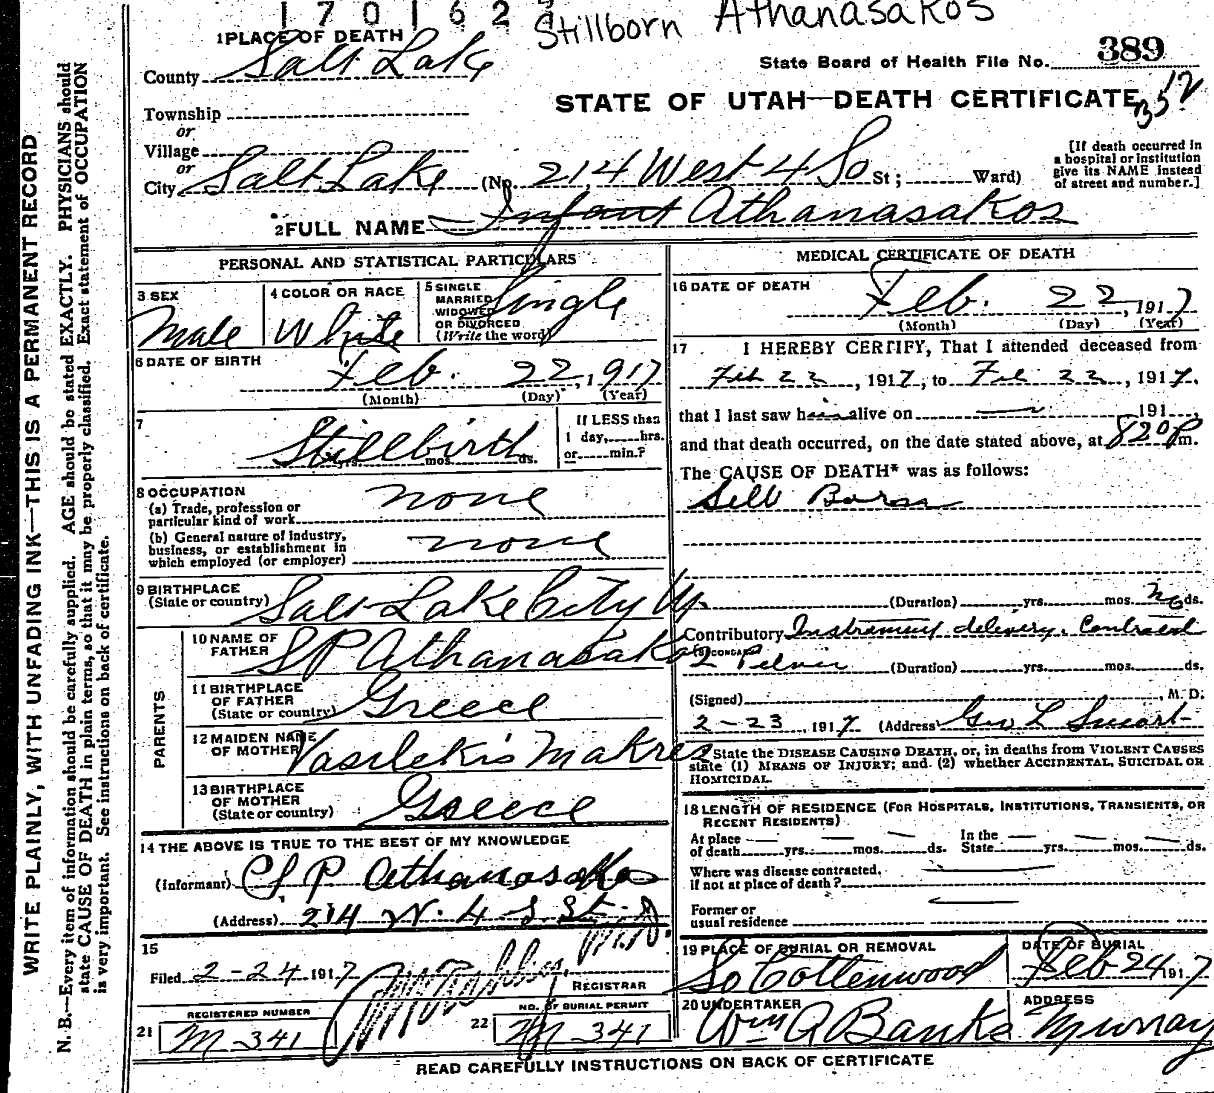 170162
Stillborn Athanasakos
1 PLACE OF DEATH
County Salt Lake
State Board of Health File No. 389
STATE OF UTAH—DEATH CERTIFICATE
352
Township
or
Village
or
City Salt Lake (No. 214 West 4 So St; Ward)
[If death occurred in a hospital or institution give its NAME instead of street and number.]
2 FULL NAME Infant Athanasakos
PERSONAL AND STATISTICAL PARTICULARS
3 SEX
Male
4 COLOR OR RACE
White
5 SINGLE
MARRIED
WIDOWED
OR DIVORCED
(Write the word)
Single
6 DATE OF BIRTH
Feb. 22, 1917
(Month) (Day) (Year)
7
Stillbirth
yrs. mos. ds.
If LESS than
1 day, hrs.
or min.?
8 OCCUPATION
(a) Trade, profession or
particular kind of work
none
(b) General nature of industry,
business, or establishment in
which employed (or employer)
none
9 BIRTHPLACE
(State or country) Salt Lake City Ut.
PARENTS
10 NAME OF
FATHER
S P Athanasakos
11 BIRTHPLACE
OF FATHER
(State or country)
Greece
12 MAIDEN NAME
OF MOTHER
Vasilekis Makres
13 BIRTHPLACE
OF MOTHER
(State or country)
Greece
14 THE ABOVE IS TRUE TO THE BEST OF MY KNOWLEDGE
(Informant) S P Athanasakos
(Address) 214 W. 4 S. St.
15
Filed 2-24 1917
REGISTRAR
REGISTERED NUMBER
21 M 341
NO. OF BURIAL PERMIT
22 M 341
MEDICAL CERTIFICATE OF DEATH
16 DATE OF DEATH
Feb. 22, 1917
(Month) (Day) (Year)
17 I HEREBY CERTIFY, That I attended deceased from
Feb 22, 1917, to Feb 22, 1917,
that I last saw him alive on — 191,
and that death occurred, on the date stated above, at 820 P m.
The CAUSE OF DEATH* was as follows:
Still Born
(Duration) yrs. mos. ds.
Contributory Instrument delivery. Contracted
Pelvis (Duration) yrs. mos. ds.
(Signed) , M. D.
2-23 1917 (Address) Geo L Smart
State the DISEASE CAUSING DEATH, or, in deaths from VIOLENT CAUSES
state (1) MEANS OF INJURY; and (2) whether ACCIDENTAL, SUICIDAL OR
HOMICIDAL.
18 LENGTH OF RESIDENCE (FOR HOSPITALS, INSTITUTIONS, TRANSIENTS, OR
RECENT RESIDENTS)
At place
of death — yrs. — mos. — ds.
In the
State — yrs. — mos. — ds.
Where was disease contracted,
if not at place of death?
Former or
usual residence
19 PLACE OF BURIAL OR REMOVAL
So Cottenwood
DATE OF BURIAL
Feb 24 1917
20 UNDERTAKER
Wm A Banks
ADDRESS
Murray
READ CAREFULLY INSTRUCTIONS ON BACK OF CERTIFICATE
WRITE PLAINLY, WITH UNFADING INK—THIS IS A PERMANENT RECORD
N. B.—Every item of information should be carefully supplied. AGE should be stated EXACTLY. PHYSICIANS should
state CAUSE OF DEATH in plain terms, so that it may be properly classified. Exact statement of OCCUPATION
is very important. See instructions on back of certificate.